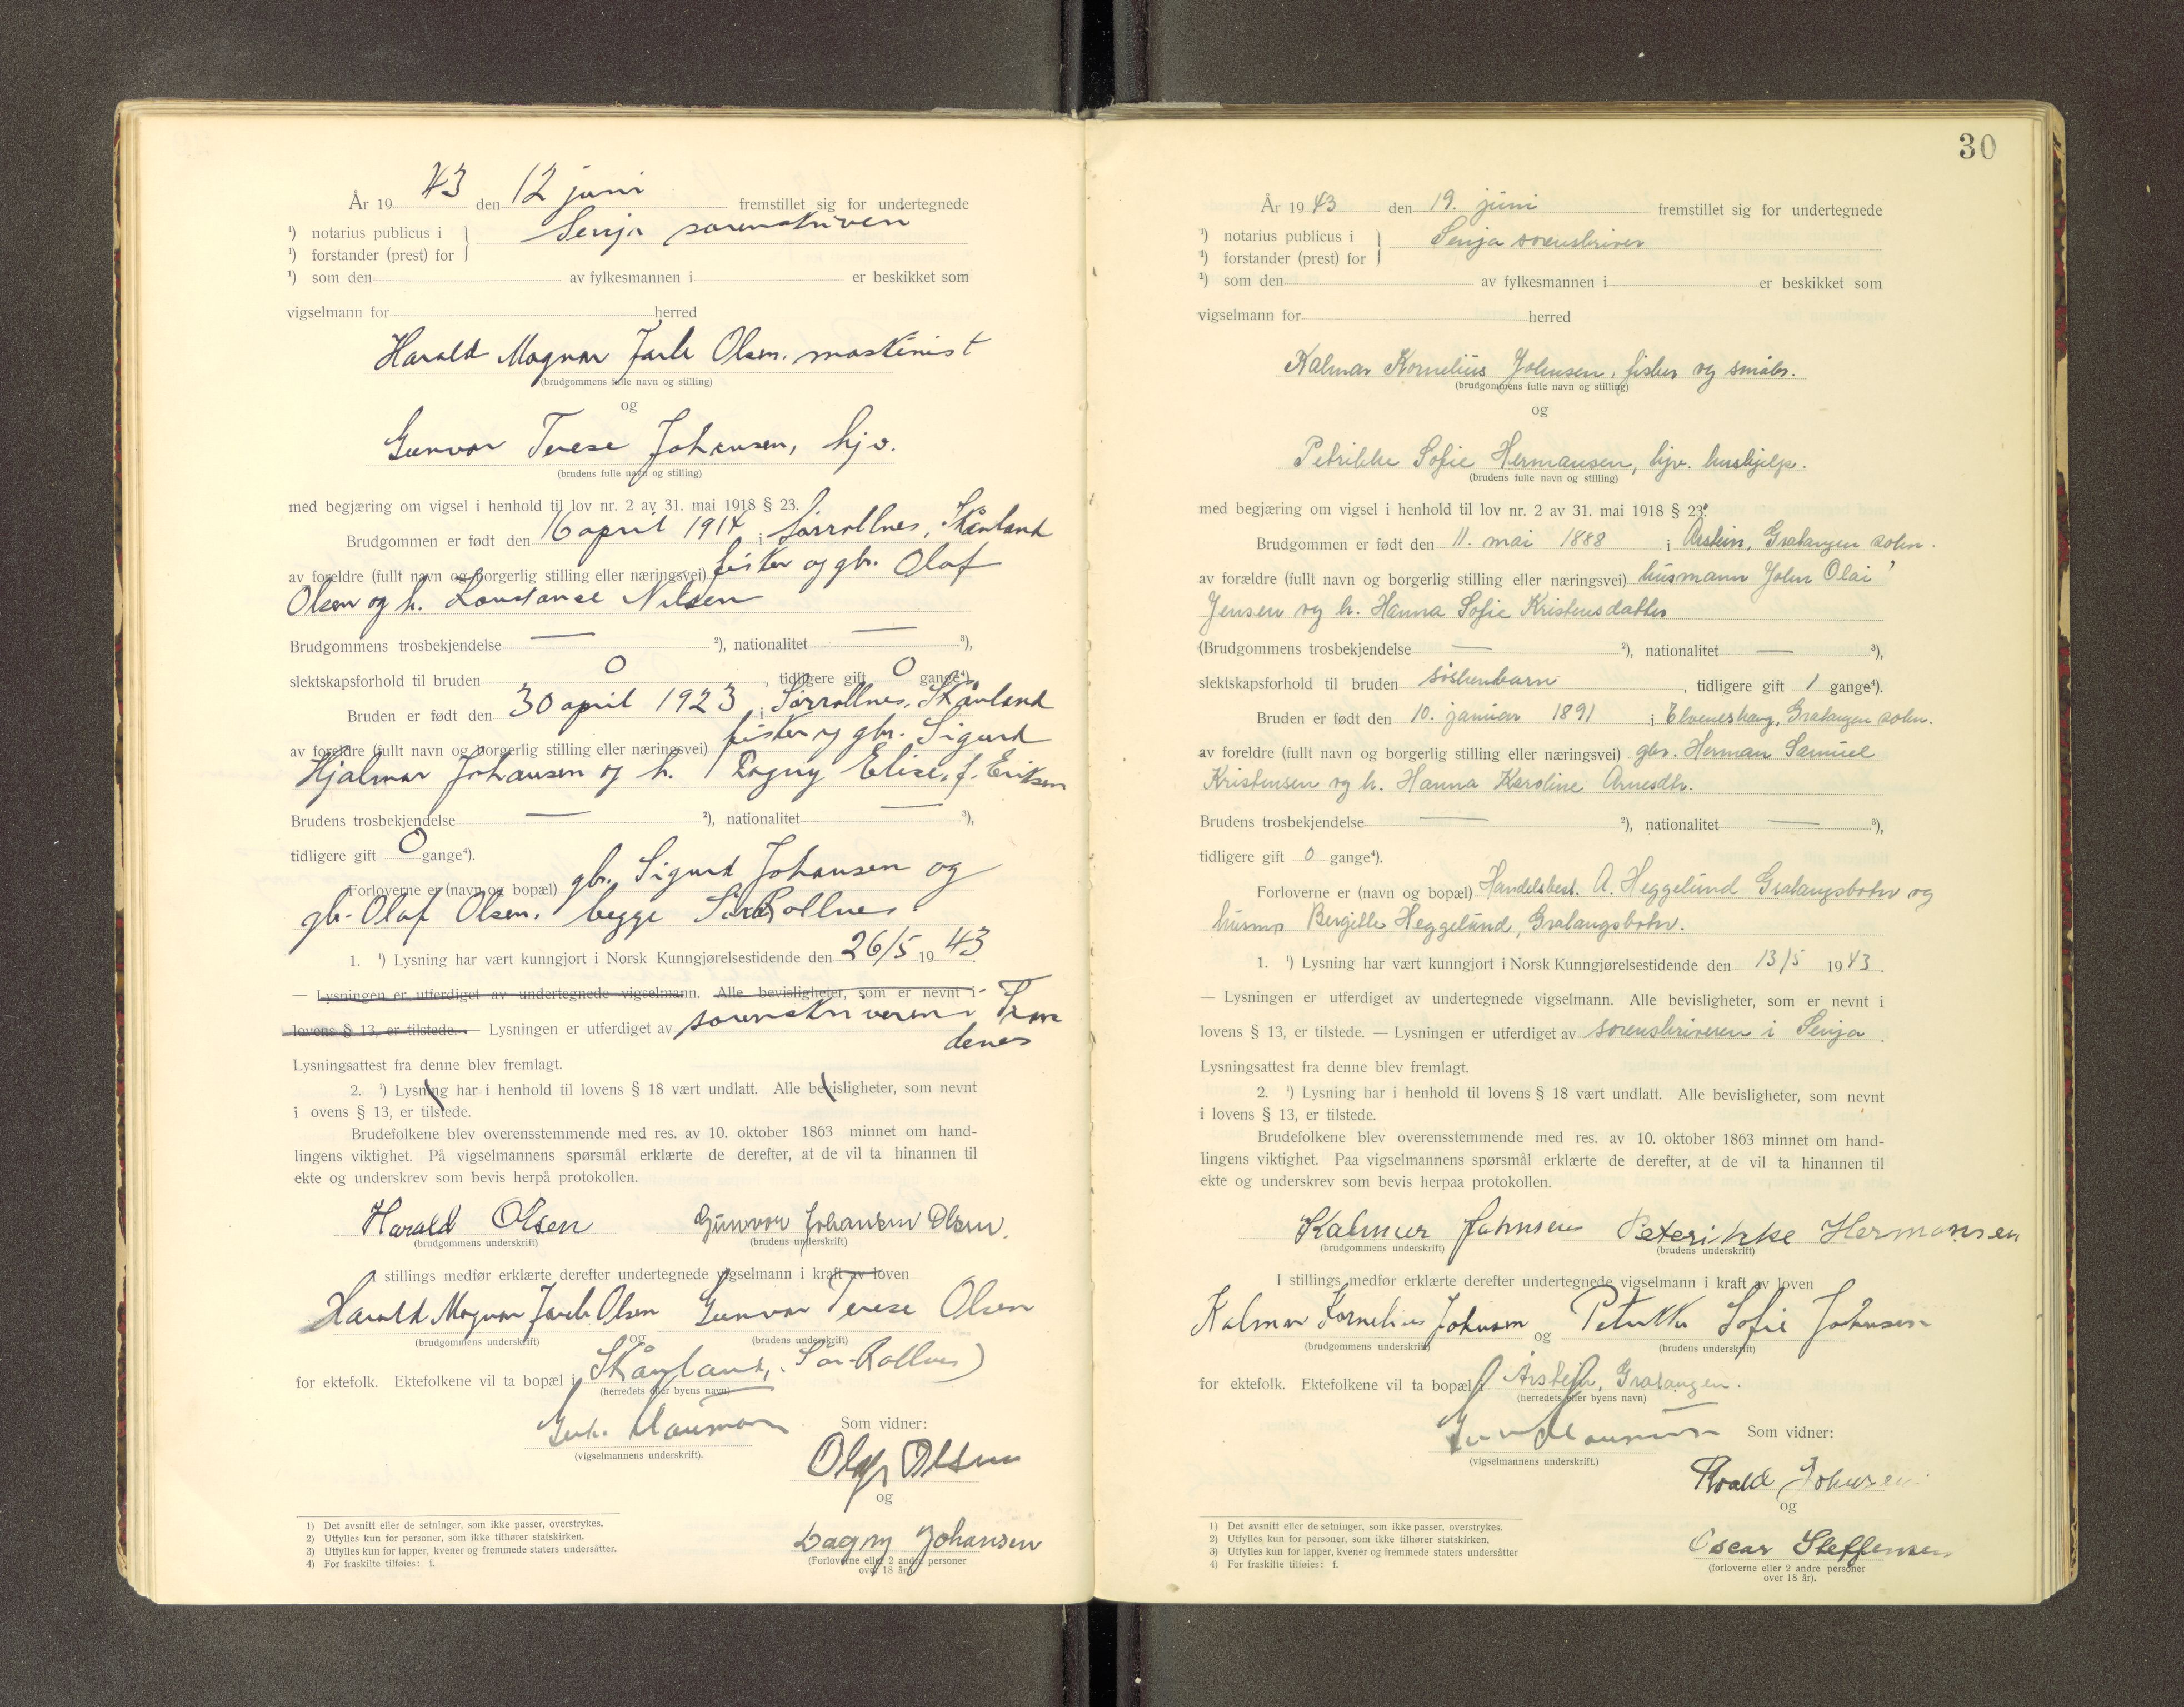 År 19 43 den 12 juni fremstillet sig for undertegnede
¹) notarius publicus i } Senja sorenskriveri
¹) forstander (prest) for
¹) som den av fylkesmannen i er beskikket som
vigselmann for herred
Harald Magnar Jarle Olsen, maskinist
(brudgommens fulle navn og stilling)
og
Gunvor Terese Johansen, hjv.
(brudens fulle navn og stilling)
med begjæring om vigsel i henhold til lov nr. 2 av 31. mai 1918 § 23.
Brudgommen er født den 16 april 1914 i Sørrollnes, Skånland
av foreldre (fullt navn og borgerlig stilling eller næringsvei) fisker og gbr. Olaf
Olsen og h. Konstanse Nilsen
Brudgommens trosbekjendelse — ²), nationalitet — ³),
slektskapsforhold til bruden 0, tidligere gift 0 gange⁴).
Bruden er født den 30 april 1923 i Sørrollnes, Skånland
av foreldre (fullt navn og borgerlig stilling eller næringsvei) fisker og gbr. Sigurd
Hjalmar Johansen og h. Dagny Elise, f. Eriksen
Brudens trosbekjendelse — ²), nationalitet — ³),
tidligere gift 0 gange⁴).
Forloverne er (navn og bopæl) gbr. Sigurd Johansen og
gbr. Olaf Olsen, begge Sørrollnes.
1. ¹) Lysning har vært kunngjort i Norsk Kunngjørelsestidende den 26/5 1943
— Lysningen er utferdiget av undertegnede vigselmann. Alle bevisligheter, som er nevnt i
lovens § 13, er tilstede. — Lysningen er utferdiget av sorenskriveren i Tron
denes
Lysningsattest fra denne blev fremlagt.
2. ¹) Lysning har i henhold til lovens § 18 vært undlatt. Alle bevisligheter, som nevnt
i ovens § 13, er tilstede.
Brudefolkene blev overensstemmende med res. av 10. oktober 1863 minnet om hand-
lingens viktighet. På vigselmannens spørsmål erklærte de derefter, at de vil ta hinannen til
ekte og underskrev som bevis herpå protokollen.
Harald Olsen Gunvor Johansen Olsen.
(brudgommens underskrift) (brudens underskrift)
I stillings medfør erklærte derefter undertegnede vigselmann i kraft av loven
Harald Magnar Jarle Olsen Gunvor Terese Olsen
(brudgommens underskrift) og (brudens underskrift)
for ektefolk. Ektefolkene vil ta bopæl i Skånland, Sør-Rollnes)
(herredets eller byens navn)
Som vidner:
(vigselmannens underskrift).
Olaf Olsen
og
Dagny Johansen
(Forloverne eller 2 andre personer
over 18 år).
1) Det avsnitt eller de setninger, som ikke passer, overstrykes.
2) Utfylles kun for personer, som ikke tilhører statskirken.
3) Utfylles kun for lapper, kvener og fremmede staters undersåtter.
4) For fraskilte tilføies: f.
30
År 19 43 den 19. juni fremstillet sig for undertegnede
¹) notarius publicus i } Senja sorenskriver
¹) forstander (prest) for
¹) som den av fylkesmannen i er beskikket som
vigselmann for herred
Kalmar Kornelius Johnsen, fisker og småbr.
(brudgommens fulle navn og stilling)
og
Petrikke Sofie Hermansen, hjv. hushjelp.
(brudens fulle navn og stilling)
med begjæring om vigsel i henhold til lov nr. 2 av 31. mai 1918 § 23.
Brudgommen er født den 11. mai 1888 i Årstein, Gratangen sokn.
av forældre (fullt navn og borgerlig stilling eller næringsvei) husmann John Olai
Jensen og h. Hanna Sofie Kristensdatter
(Brudgommens trosbekjendelse — ²), nationalitet — ³),
slektskapsforhold til bruden søskenbarn, tidligere gift 1 gange⁴).
Bruden er født den 10. januar 1891 i Elveneshaug, Gratangen sokn.
av foreldre (fullt navn og borgerlig stilling eller næringsvei) gbr. Herman Samuel
Kristensen og h. Hanna Karoline Arnesdtr.
Brudens trosbekjendelse — ²), nationalitet — ³),
tidligere gift 0 gange⁴).
Forloverne er (navn og bopæl) Handelsbest. A. Heggelund Gratangsbotn og
husmo Bergitte Heggelund, Gratangsbotn.
1. ¹) Lysning har vært kunngjort i Norsk Kunngjørelsestidende den 13/5 1943.
— Lysningen er utferdiget av undertegnede vigselmann. Alle bevisligheter, som er nevnt i
lovens § 13, er tilstede. — Lysningen er utferdiget av sorenskriveren i Senja.
Lysningsattest fra denne blev fremlagt.
2. ¹) Lysning har i henhold til lovens § 18 vært undlatt. Alle bevisligheter, som nevnt
i lovens § 13, er tilstede.
Brudefolkene blev overensstemmende med res. av 10. oktober 1863 minnet om hand-
lingens viktighet. Paa vigselmannens spørsmål erklærte de derefter, at de vil ta hinannen til
ekte og underskrev som bevis herpaa protokollen.
Kalmar Johnsen Peterikke Hermansen
(brudgommens underskrift) (brudens underskrift)
I stillings medfør erklærte derefter undertegnede vigselmann i kraft av loven
Kalmar Kornelius Johnsen og Petrikke Sofie Johnsen
(brudgommens underskrift) (brudens underskrift)
for ektefolk. Ektefolkene vil ta bopæl i Årstein, Gratangen.
(herredets eller byens navn)
Som vidner:
(vigselmannens underskrift.)
Roald Johnsen
og
Oscar Steffensen
(forloverne eller 2 andre personer
over 18 år).
1) Det avsnitt eller de setninger, som ikke passer, overstrykes.
2) Utfylles kun for personer, som ikke tilhører statskirken.
3) Utfylles kun for lapper, kvener og fremmede staters undersåtter
4) For fraskilte tilføies: f.